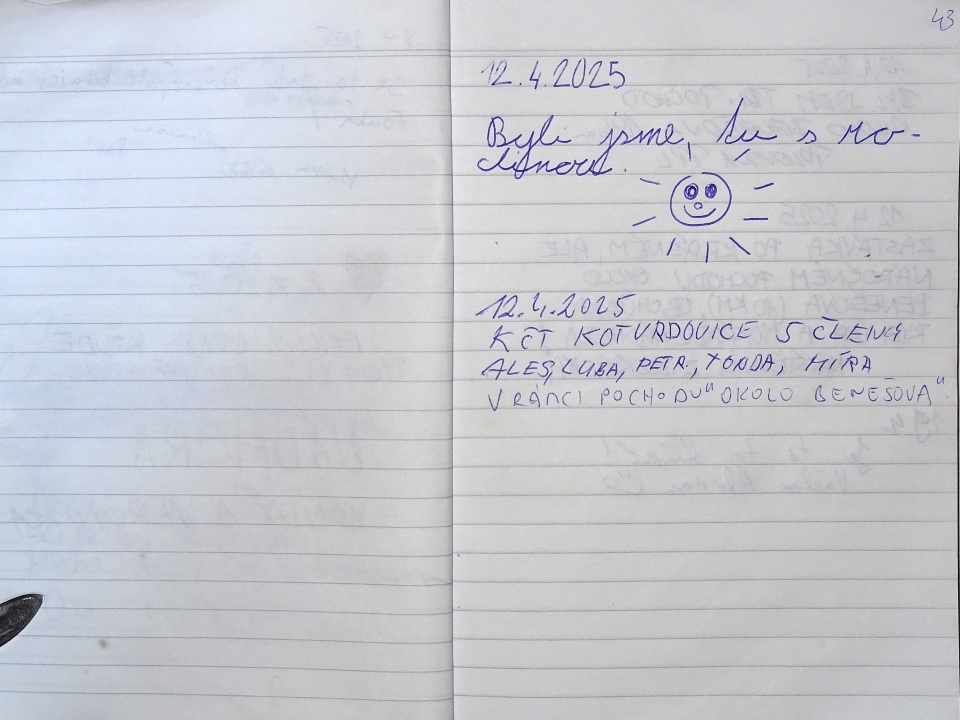 43
12.4.2025
Byli jsme, tu s ro-
dinou.
12.4.2025
KČT KOTVRDOVICE S ČLENY
ALEŠ, LUBA, PETR., TONDA, MÍRA
V RÁMCI POCHODU "OKOLO BENEŠOVA".